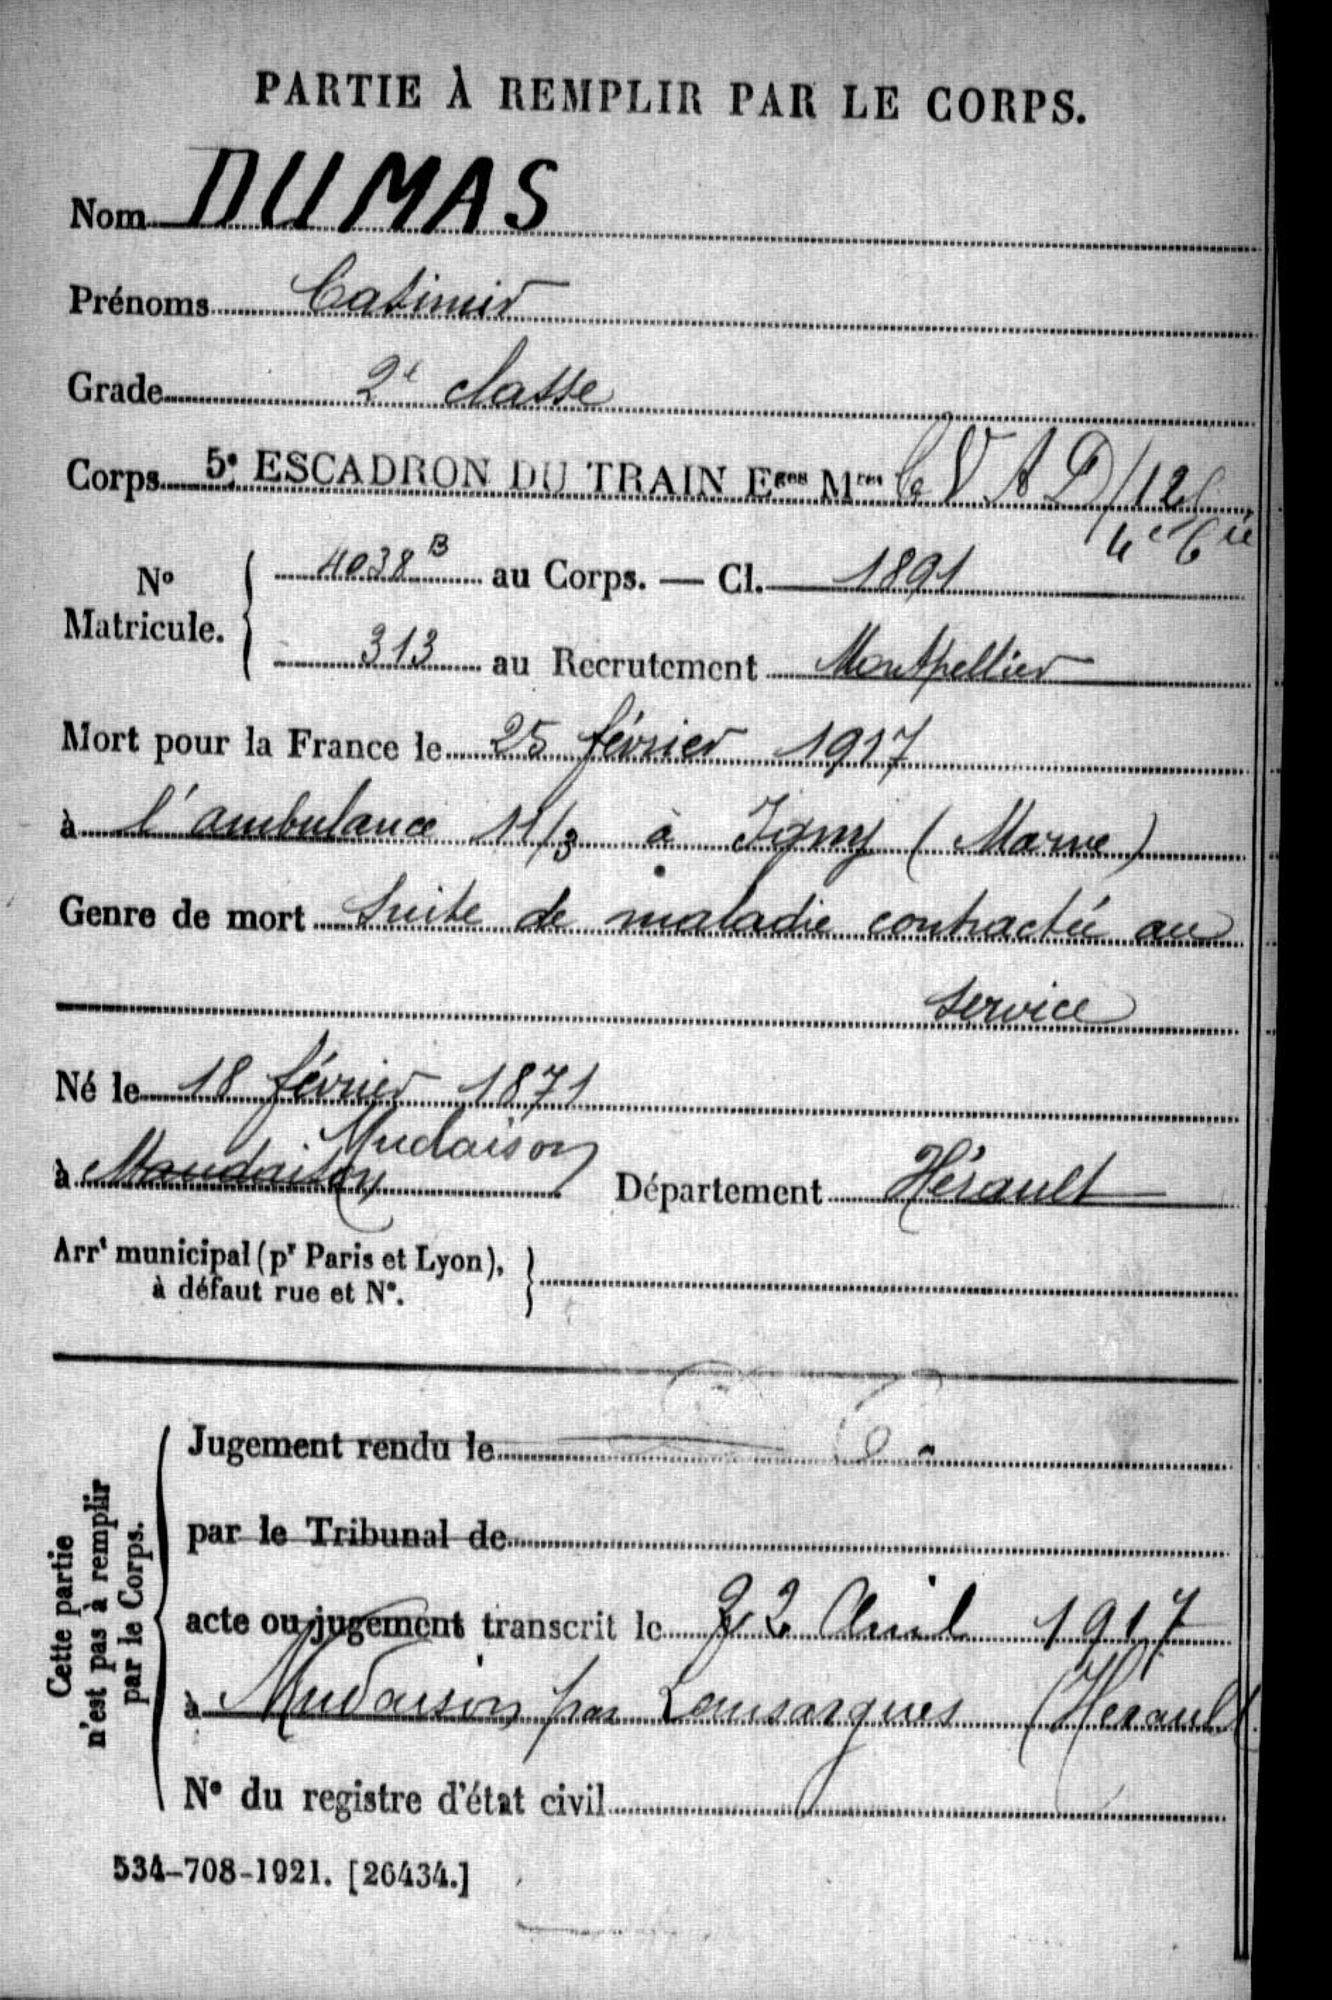 PARTIE À REMPLIR PAR LE CORPS.
Nom DUMAS
Prénoms Casimir
Grade 2e classe
Corps 5e ESCADRON DU TRAIN Eges Mres C V A D/12
4e Cie
No Matricule. { 4038 B au Corps. — Cl. 1891
313 au Recrutement Montpellier
Mort pour la France le 25 février 1917
à l'ambulance 11/3 à Igny (Marne)
Genre de mort suite de maladie contractée au
service
Né le 18 février 1871
Mudaison
à Maudaison Département Hérault
Arrt municipal (pr Paris et Lyon),
à défaut rue et No.
Cette partie n'est pas à remplir par le Corps.
Jugement rendu le
par le Tribunal de
acte ou jugement transcrit le 22 Avril 1917
à Mudaison par Lansargues (Hérault
No du registre d'état civil
534-708-1921. [26434.]